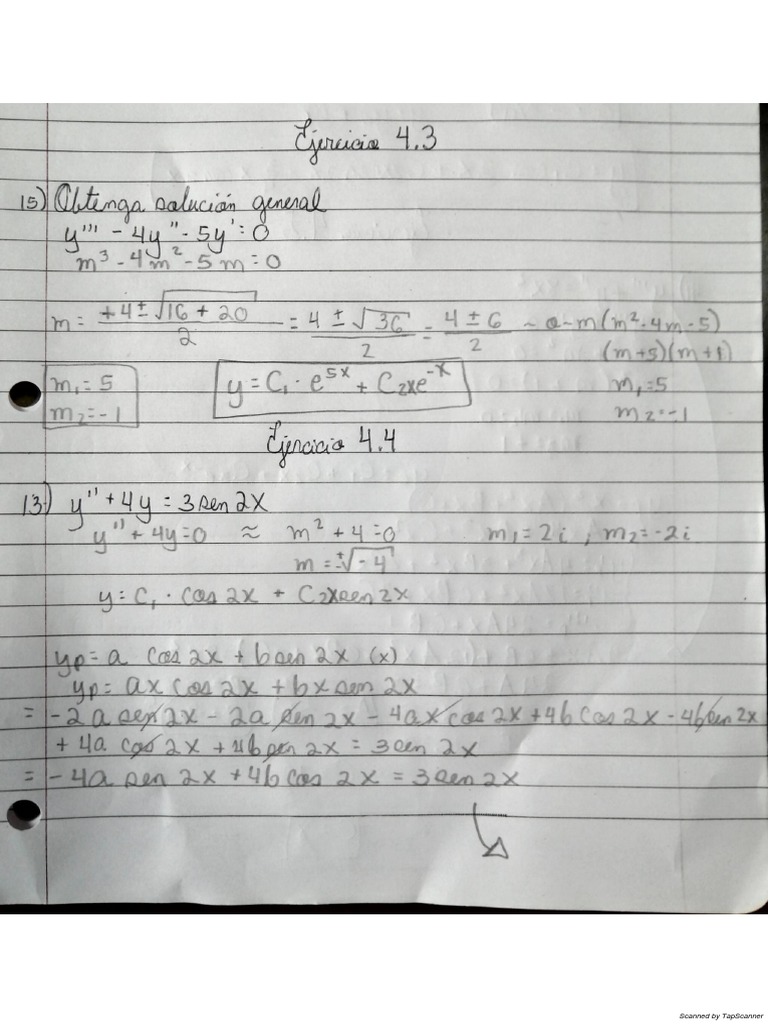 Ejercicio 4.3
15) Obtenga solución general
y''' - 4y'' - 5y' = 0
m³ - 4m² - 5m = 0
m = +4 ± √16 + 20 / 2 = 4 ± √36 / 2 = 4 ± 6 / 2 ~ 0 ~ m(m² - 4m - 5)
(m+5)(m+1)
m₁ = 5 y = C₁ · e^5x + C₂xe^-x m₁ = 5
m₂ = -1 m₂ = -1
Ejercicio 4.4
13) y'' + 4y = 3 sen 2x
y'' + 4y = 0 ≈ m² + 4 = 0 m₁ = 2i , m₂ = -2i
m = ±√-4
y = C₁ · cos 2x + C₂xsen 2x
yp = a cos 2x + b sen 2x (x)
yp = ax cos 2x + bx sen 2x
= -2a sen 2x - 2a sen 2x - 4ax cos 2x + 4b cos 2x - 4b sen 2x
+ 4a cos 2x + 4b sen 2x = 3 sen 2x
= -4a sen 2x + 4b cos 2x = 3 sen 2x
Scanned by TapScanner